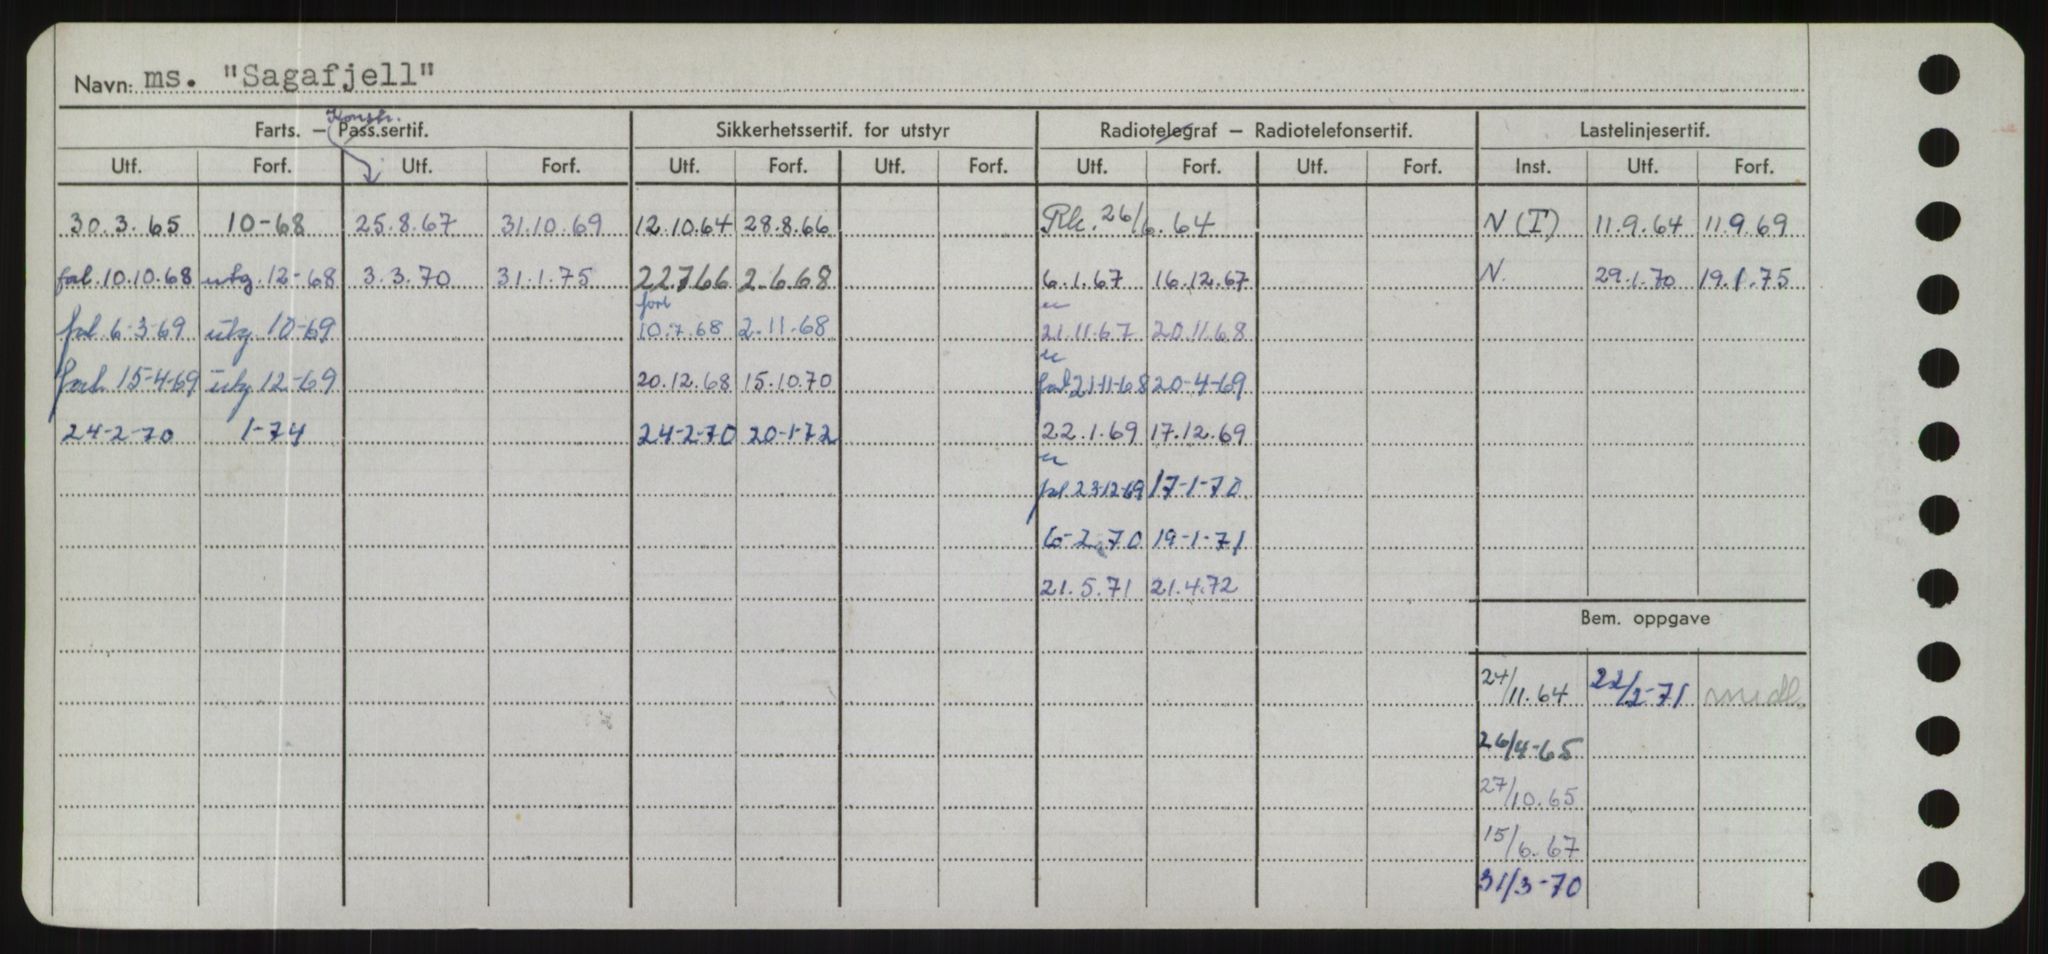 Navn: ms. "Sagafjell"
Konstr.
Farts. – Pass.sertif. Sikkerhetssertif. for utstyr Radiotelegraf – Radiotelefonsertif. Lastelinjesertif.
Utf. Forf. Utf. Forf. Utf. Forf. Utf. Forf. Utf. Forf. Utf. Forf. Inst. Utf. Forf.
30.3.65 10-68 25.8.67 31.10.69 12.10.64 28.8.66 Rk. 26/6.64 N(I) 11.9.64 11.9.69
fol. 10.10.68 utg. 12-68 3.3.70 31.1.75 22.7.66 2.6.68 6.1.67 16.12.67 N. 29.1.70 19.1.75
forl
fol. 6-3-69 utg. 10-69 10.7.68 2.11.68 21.11.67 20.11.68
forl. 15-4-69 utg 12-69 20.12.68 15.10.70 forl 21-11-68 20-4-69
24-2-70 1-74 24-2-70 20-1-72 22.1.69 17.12.69
fol 23-12-69 17-1-70
6-2-70 19-1-71
21.5.71 21.4.72
Bem. oppgave
24/11.64 22/2-71 midl.
26/4-65
27/10.65
15/6.67
31/3-70